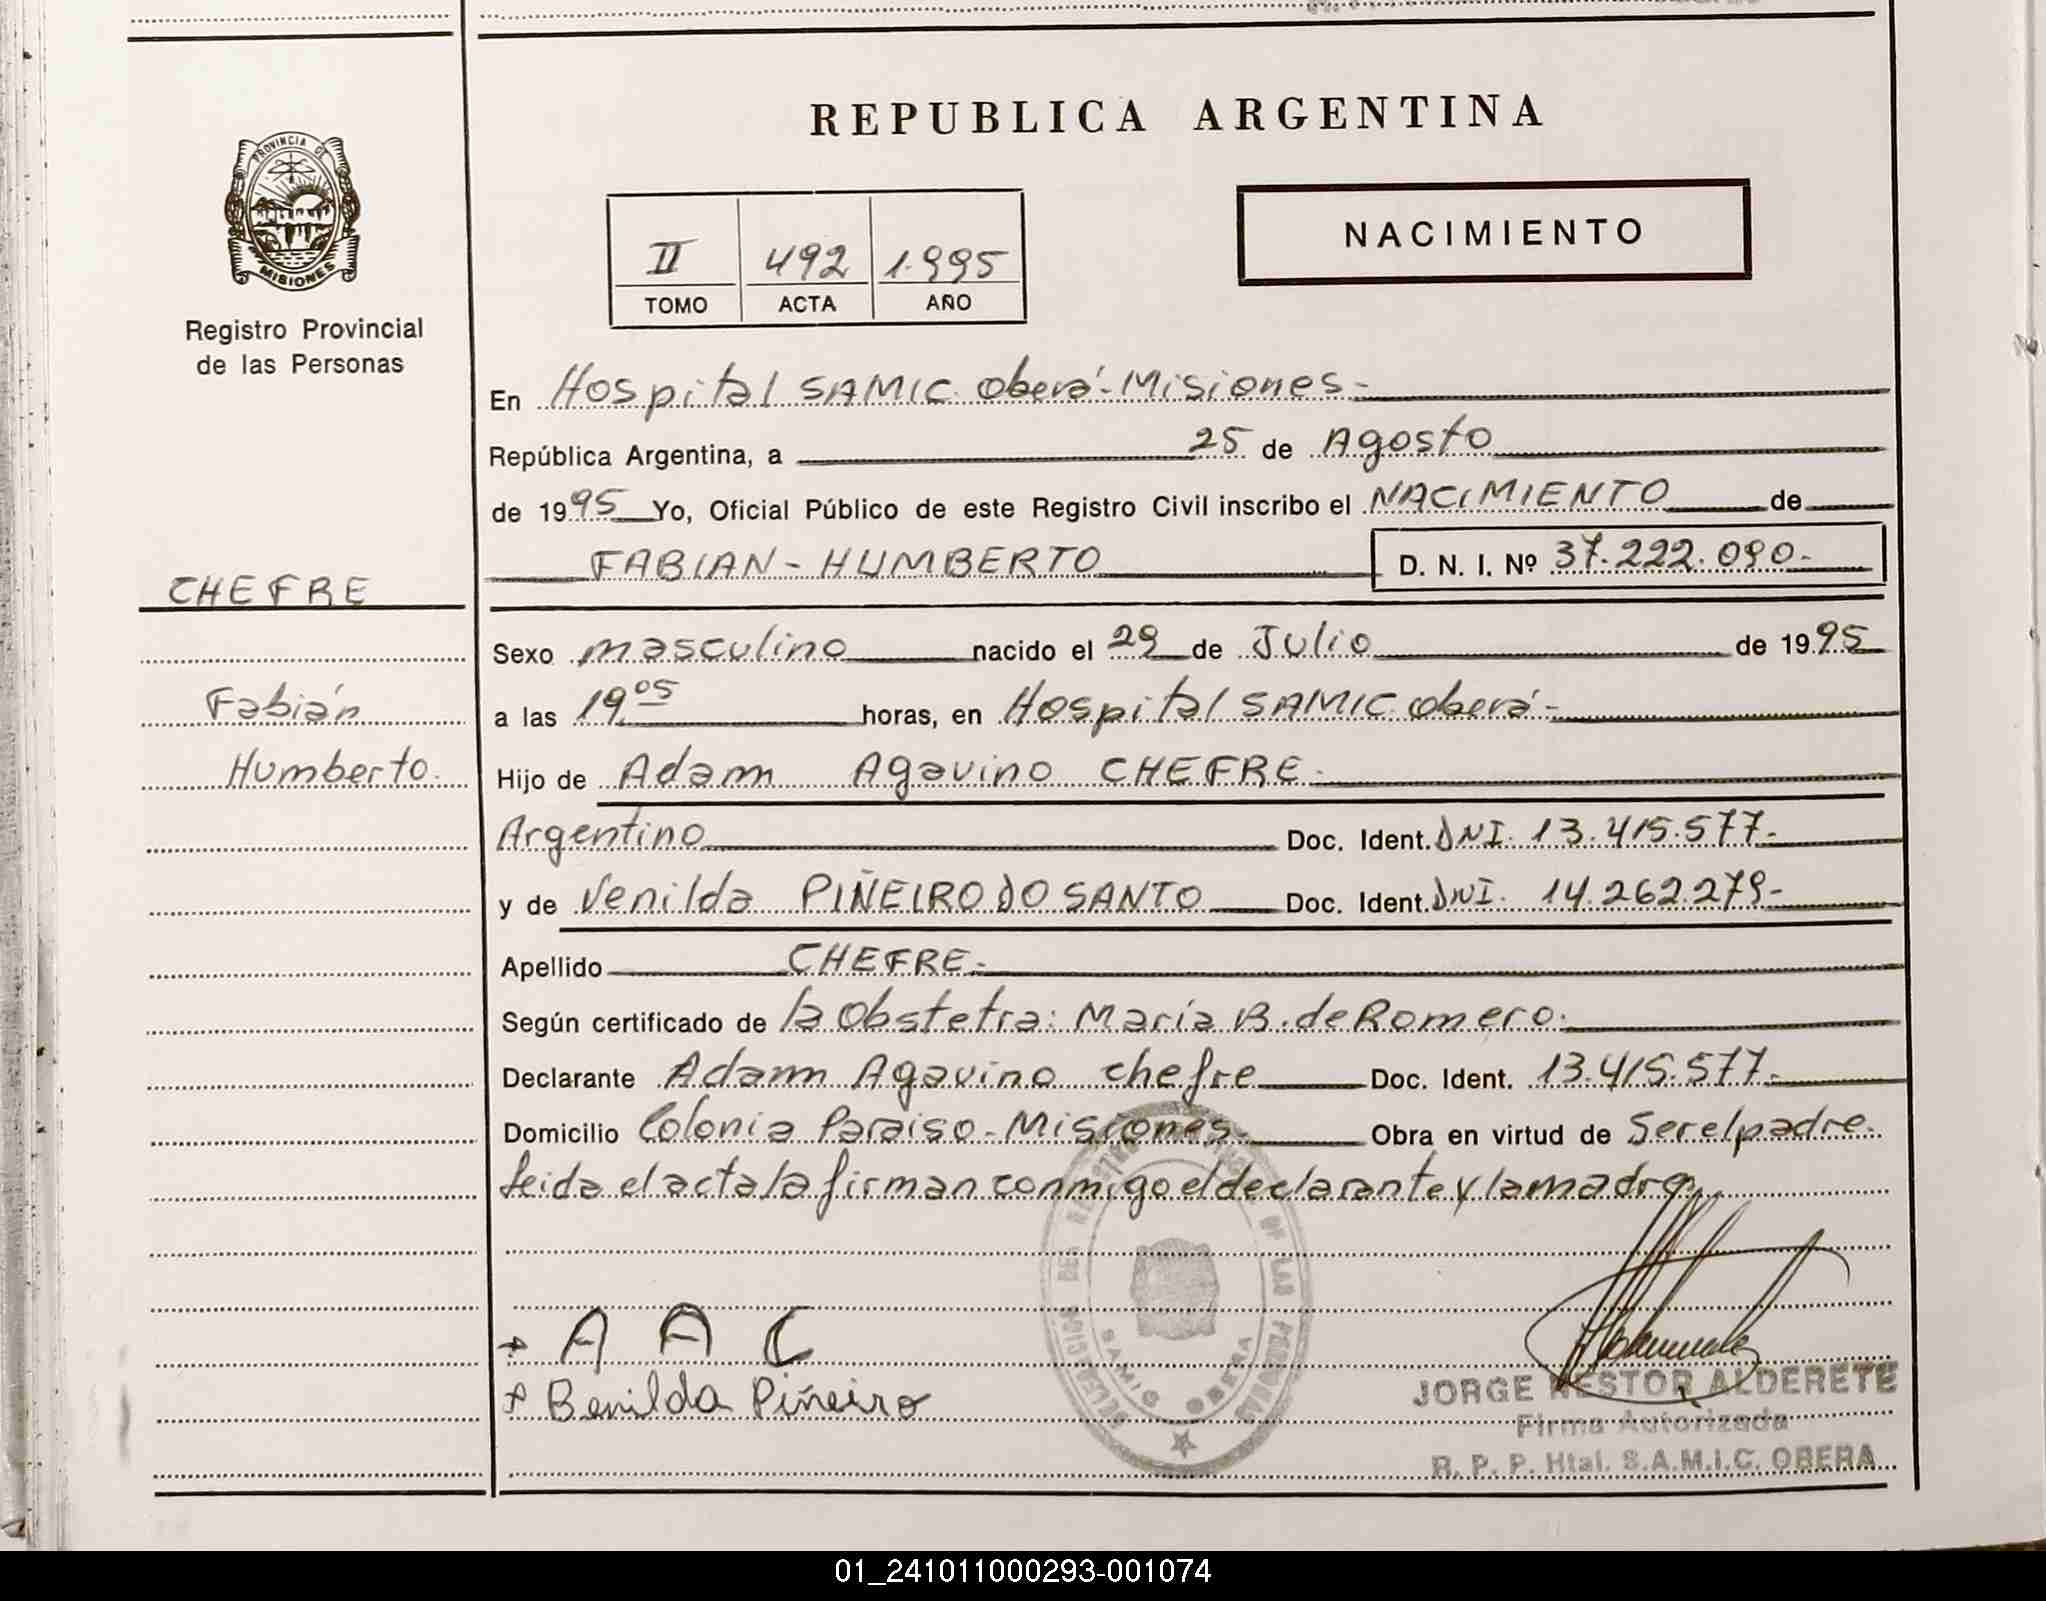 REPUBLICA ARGENTINA
PROVINCIA DE
MISIONES
Registro Provincial
de las Personas
II 492 1.995
TOMO ACTA AÑO
NACIMIENTO
En Hospital SAMIC. Oberá-Misiones-
República Argentina, a 25 de Agosto
de 1995 Yo, Oficial Público de este Registro Civil inscribo el NACIMIENTO de
FABIAN-HUMBERTO D. N. I. Nº 37.222.090-
CHEFRE
Fabián
Humberto.
Sexo masculino nacido el 29 de Julio de 1995
a las 19 05 horas, en Hospital SAMIC. Oberá-
Hijo de Adam Agavino CHEFRE-
Argentino Doc. Ident. DNI. 13.415.577-
y de Venilda PIÑEIRO DO SANTO Doc. Ident. DNI. 14.262.279-
Apellido CHEFRE-
Según certificado de la Obstetra: María B. de Romero.
Declarante Adam Agavino Chefre Doc. Ident. 13.415.577-
Domicilio Colonia Paraiso-Misiones- Obra en virtud de Ser el padre.
Leida el acta la firman conmigo el declarante y la madre
A A C
Benilda Piñeiro
SAMIC OBERA
JORGE NESTOR ALDERETE
Firma Autorizada
R. P. P. Htal. S.A.M.I.C. OBERA
01_241011000293-001074